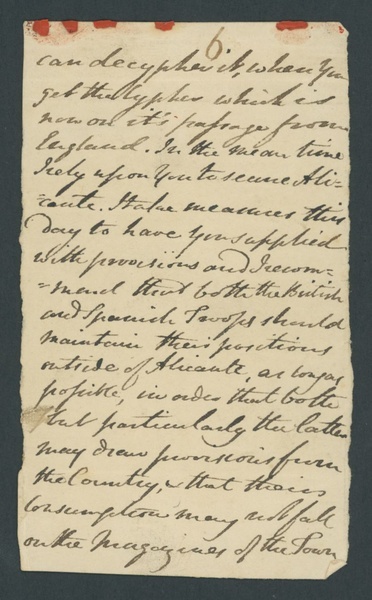 6
can decypher it, when You
get the Cypher which is
now on it's passage from
England. In the mean time
I rely upon You to secure Ali=
=cante. I take measures this
day to have you supplied
with provisions and I recom=
=mend that both the British
and Spanish Troops should
maintain their positions
outside of Alicante, as long as
possible, in order that both
but particularly the latter
may draw provisions from
the Country, & that their
Consumption may not fall
on the Magazines of the Town